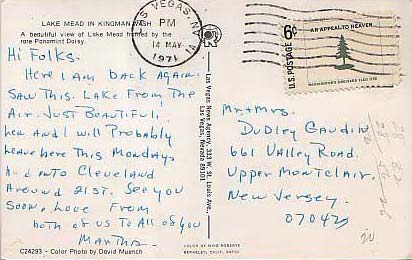 LAKE MEAD IN KINGMAN WASH
A beautiful view of Lake Mead framed by the
rare Panamint Daisy.
Hi Folks.
Here I am back again
Saw this Lake from the
Air. Just Beautiful,
and I will Probably
leave here this Monday
And into Cleveland
Around 21st. See you
Soon, Love from
both of us to All of you
Martha.
C24293 - Color Photo by David Muench
LAS VEGAS, NV
PM
14 MAY
1971
Las Vegas News Agency, 333 W. St. Louis Ave.,
Las Vegas, Nevada 89101
COLOR BY MIKE ROBERTS
BERKELEY, CALIF. 94710
U.S. POSTAGE
6¢
AN APPEAL TO HEAVEN
WASHINGTON'S CRUISERS FLAG 1775
Mr. + Mrs.
Dudley Gaudin
661 Valley Road.
Upper Montclair.
New Jersey.
07042